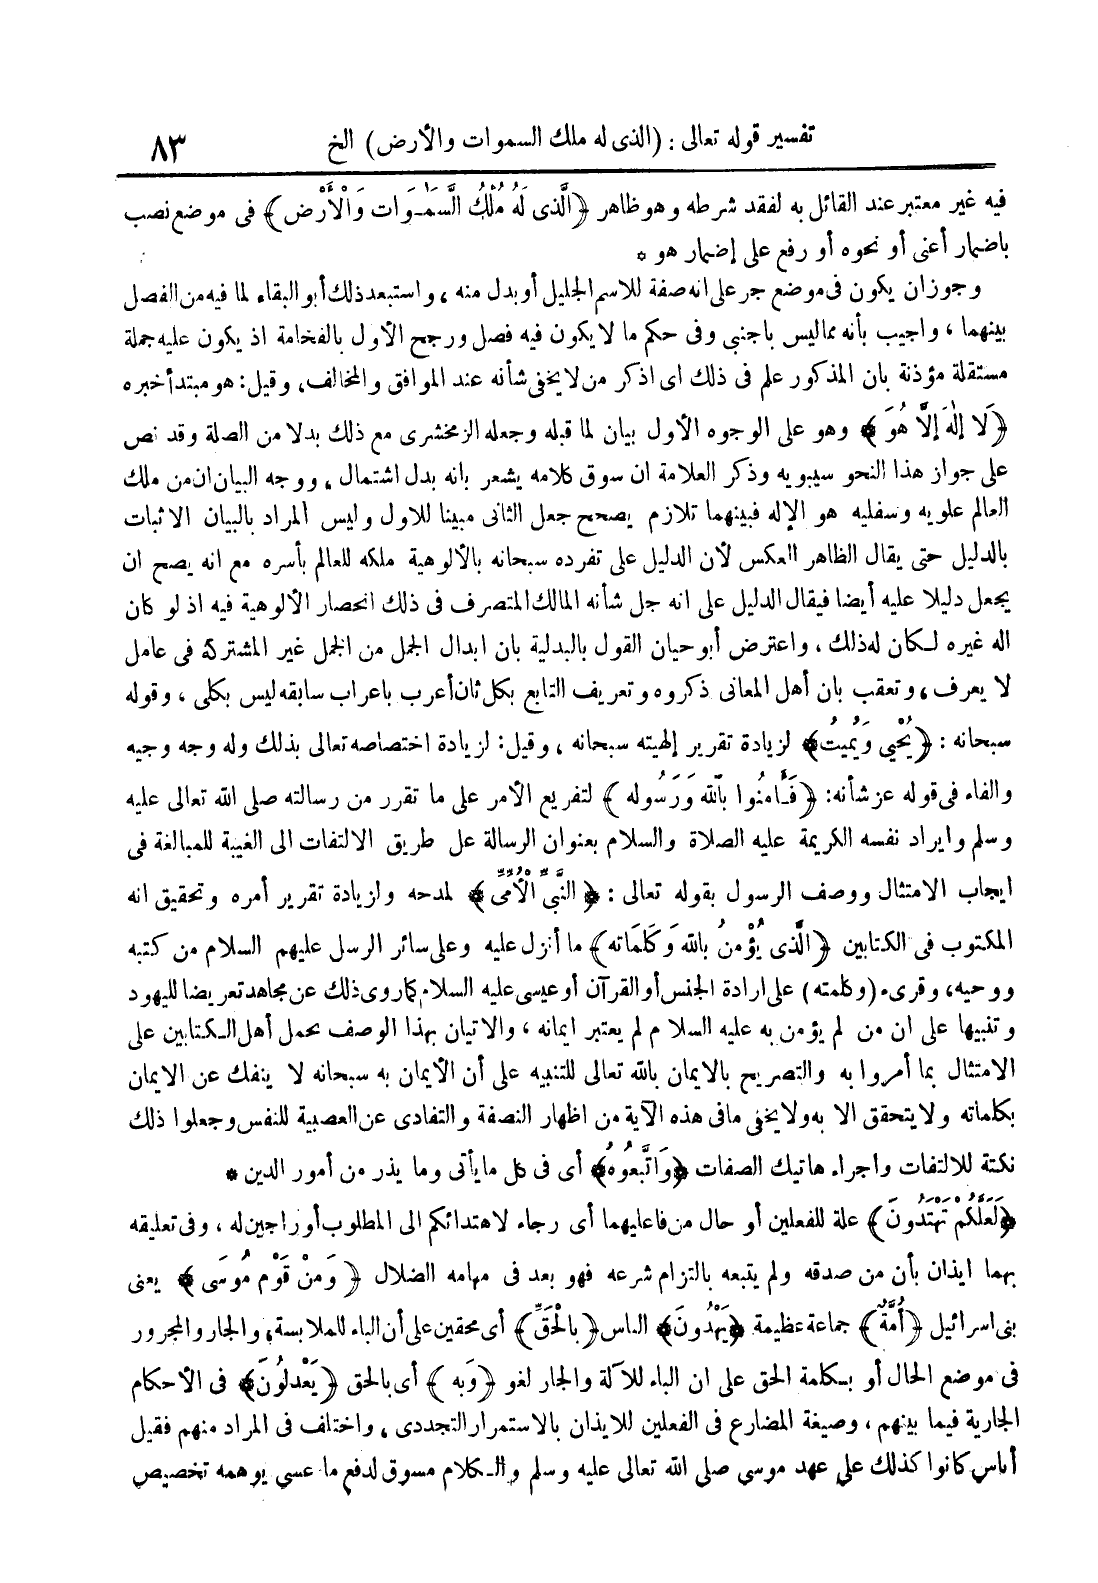 تفسير قوله تعالى : (الذى له ملك السموات والأرض) الخ ٨٣
فيه غير معتبر عند القائل به لفقد شرطه وهو ظاهر ﴿الَّذى لَهُ مُلْكُ السَّمٰوَات وَالْأَرْض﴾ فى موضع نصب
باضمار أعنى أو نحوه أو رفع على إضمار هو *
وجوز ان يكون فى موضع جر على انه صفة للاسم الجليل أو بدل منه ، واستبعد ذلك أبو البقاء لما فيه من الفصل
بينهما ، واجيب بأنه مما ليس باجنبي وفى حكم ما لا يكون فيه فصل ورجح الأول بالفخامة اذ يكون عليه جملة
مستقلة مؤذنة بان المذكور علم فى ذلك اى اذكر من لا يخفى شأنه عند الموافق والمخالف، وقيل: هو مبتدأ خبره
﴿لَا إِلٰهَ إِلَّا هُوَ﴾ وهو على الوجوه الأول بيان لما قبله وجعله الزمخشرى مع ذلك بدلا من الصلة وقد نص
على جواز هذا النحو سيبويه وذكر العلامة ان سوق كلامه يشعر بانه بدل اشتمال ، ووجه البيان ان من ملك
العالم علويه وسفليه هو الإله فبينهما تلازم يصحح جعل الثانى مبينا للاول وليس المراد بالبيان الاثبات
بالدليل حتى يقال الظاهر العكس لأن الدليل على تفرده سبحانه بالألوهية ملكه للعالم بأسره مع انه يصح ان
يجعل دليلا عليه أيضا فيقال الدليل على انه جل شأنه المالك المتصرف فى ذلك انحصار الألوهية فيه اذ لو كان
اله غيره لكان له ذلك ، واعترض أبو حيان القول بالبدلية بان ابدال الجمل من الجمل غير المشتركة فى عامل
لا يعرف ، وتعقب بان أهل المعانى ذكروه وتعريف التابع بكل ثان أعرب باعراب سابقه ليس بكلى ، وقوله
سبحانه : ﴿يُحْيِي وَيُمِيتُ﴾ لزيادة تقرير إلهيته سبحانه ، وقيل: لزيادة اختصاصه تعالى بذلك وله وجه وجيه
والفاء فى قوله عز شأنه: ﴿فَـَٔامنُوا بالله وَرَسُوله﴾ لتفريع الأمر على ما تقرر من رسالته صلى الله تعالى عليه
وسلم وايراد نفسه الكريمة عليه الصلاة والسلام بعنوان الرسالة على طريق الالتفات الى الغيبة للمبالغة فى
ايجاب الامتثال ووصف الرسول بقوله تعالى : ﴿النَّبىِّ الْأُمِّىِّ﴾ لمدحه ولزيادة تقرير أمره وتحقيق انه
المكتوب فى الكتابين ﴿الَّذى يُؤْمنُ بالله وَكَلمَاته﴾ ما أنزل عليه وعلى سائر الرسل عليهم السلام من كتبه
ووحيه، وقرىء (وكلمته) على ارادة الجنس أو القرآن أو عيسى عليه السلام كما روى ذلك عن مجاهد تعريضا لليهود
وتنبيها على ان من لم يؤمن به عليه السلام لم يعتبر ايمانه ، والاتيان بهذا الوصف بحمل أهل الكتابين على
الامتثال بما أمروا به والتصريح بالايمان بالله تعالى للتنبيه على أن الأيمان به سبحانه لا ينفك عن الايمان
بكلماته ولا يتحقق الا به ولا يخفى ما فى هذه الآية من اظهار النصفة والتفادى عن العصبية للنفس وجعلوا ذلك
نكتة للالتفات واجراء هاتيك الصفات ﴿وَاتَّبعُوهُ﴾ أى فى كل ما يأتى وما يذر من أمور الدين *
﴿لَعَلَّكُمْ تَهْتَدُونَ﴾ علة للفعلين أو حال من فاعليهما أى رجاء لاهتدائكم الى المطلوب أو راجين له ، وفى تعليقه
بهما ايذان بأن من صدقه ولم يتبعه بالتزام شرعه فهو بعد فى مهامه الضلال ﴿وَمنْ قَوْم مُوسَى﴾ يعنى
بنى اسرائيل ﴿أُمَّةٌ﴾ جماعة عظيمة ﴿يَهْدُونَ﴾ الناس ﴿بالْحَقِّ﴾ أى محقين على أن الباء للملابسة، والجار والمجرور
فى موضع الحال أو بكلمة الحق على ان الباء للآلة والجار لغو ﴿وَبه﴾ أى بالحق ﴿يَعْدلُونَ﴾ فى الأحكام
الجارية فيما بينهم ، وصيغة المضارع فى الفعلين للايذان بالاستمرار التجددى ، واختلف فى المراد منهم فقيل
أناس كانوا كذلك على عهد موسى صلى الله تعالى عليه وسلم والكلام مسوق لدفع ما عسى يوهمه تخصيص